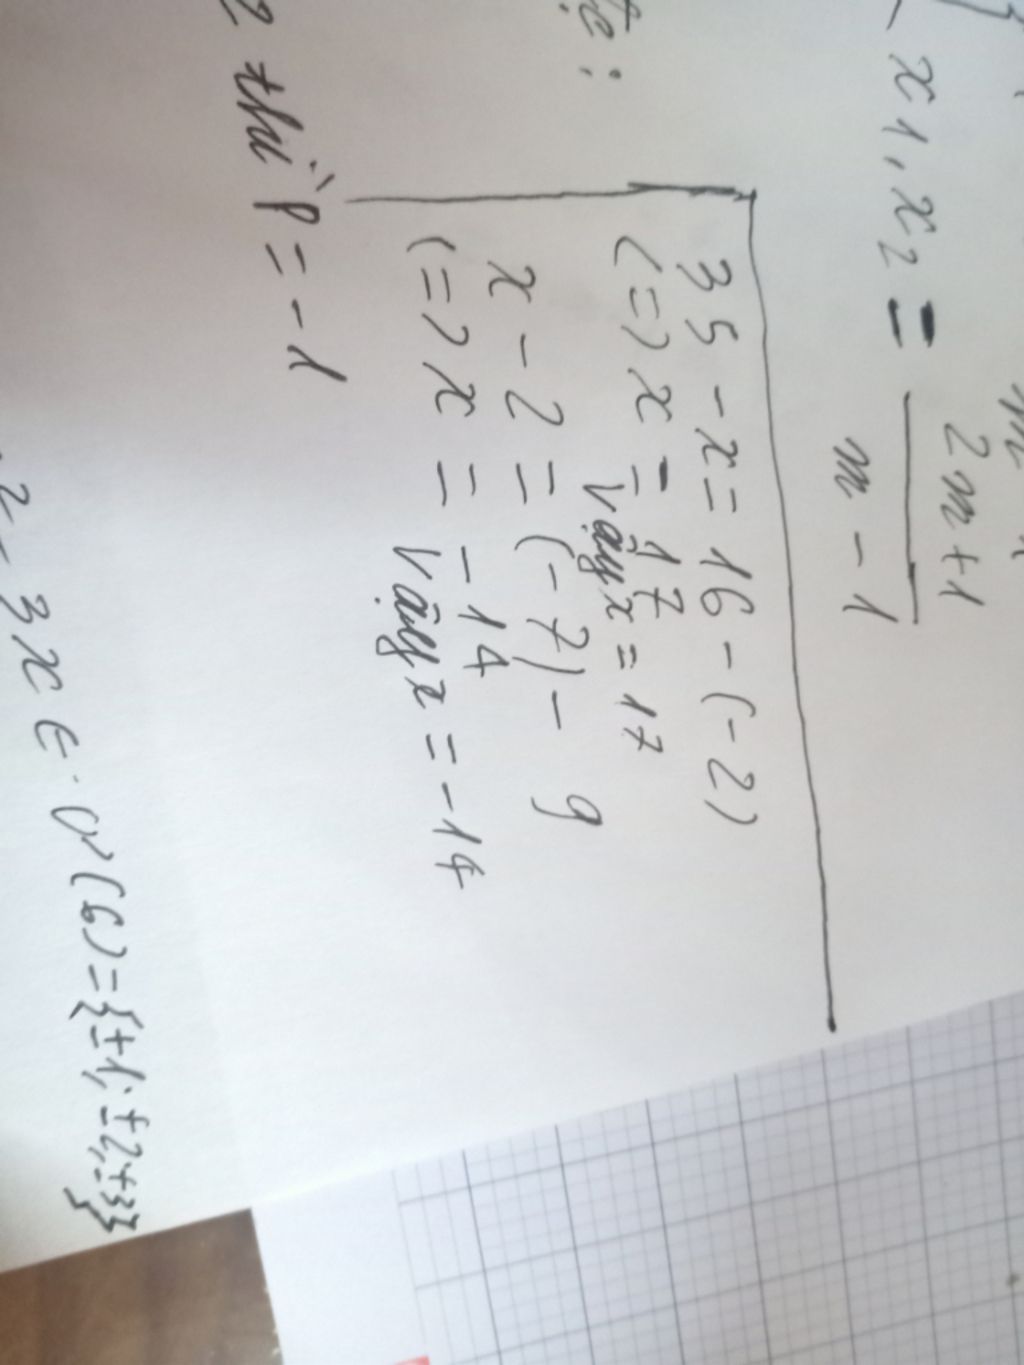 x1, x2 = 2m+1
m - 1
35 - x = 16 - (-2)
(=) x = 17
Vậy x = 17
x - 2 = (-7) - 9
(=) x = -14
Vậy x = -14
2 thì P = -1
2 - 3x ∈ Ư(6) = {±1; ±2; ±3}